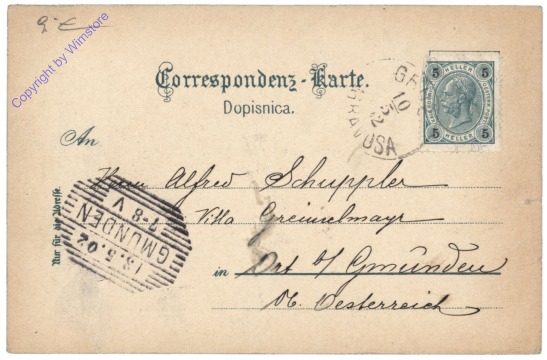 9,- €
Copyright by Wimstore
Correspondenz-Karte.
Dopisnica.
5 5
HELLER HELLER
5 5
GRAVOSA
10
An
Herrn Alfred Schuppler
Villa Greinselmayr
in Ort b/ Gmunden
Ob. Oesterreich
Nur für die Adresse.
GMUNDEN
13.5.02
7-8 V